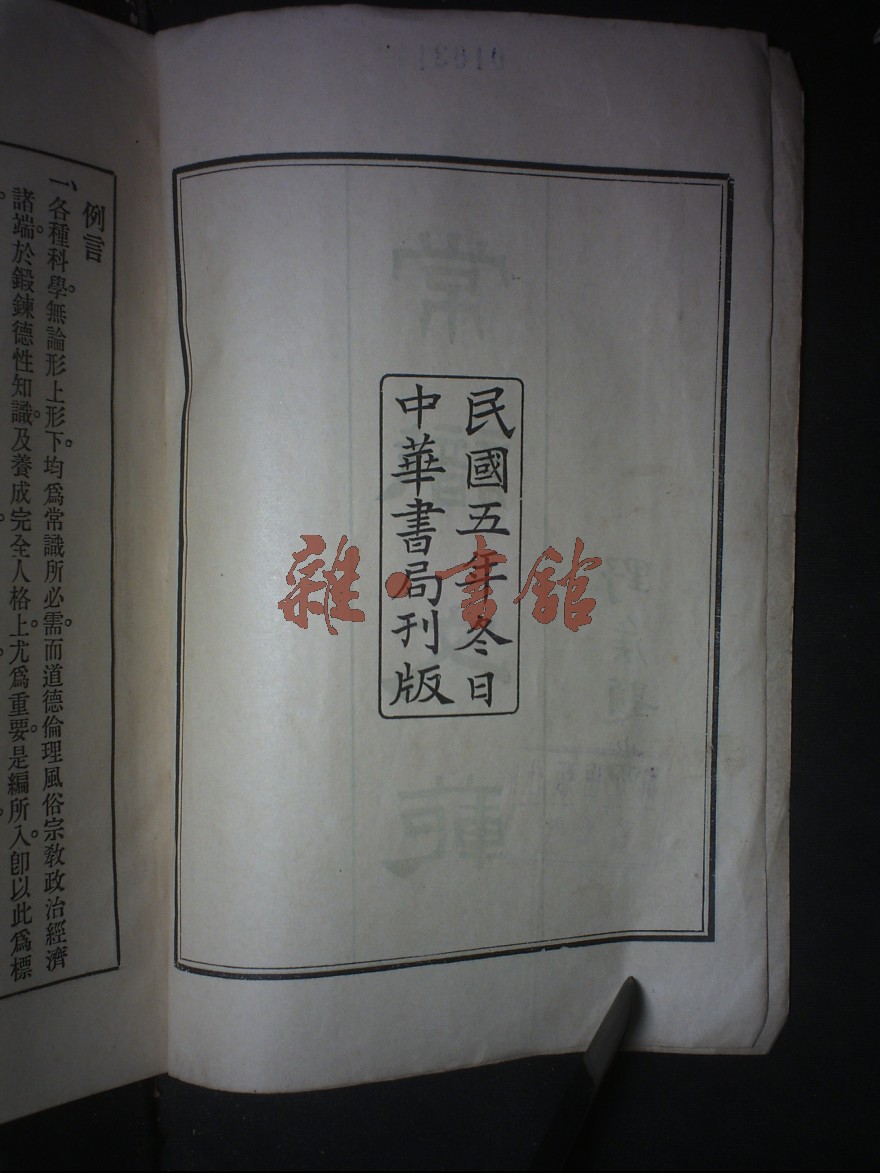 民國五年冬日
中華書局刊版
雜·書館
例言
一、各種科學。無論形上形下。均爲常識所必需。而道德倫理風俗宗教政治經濟
諸端。於鍛鍊德性知識。及養成完全人格上。尤爲重要。是編所入。卽以此爲標